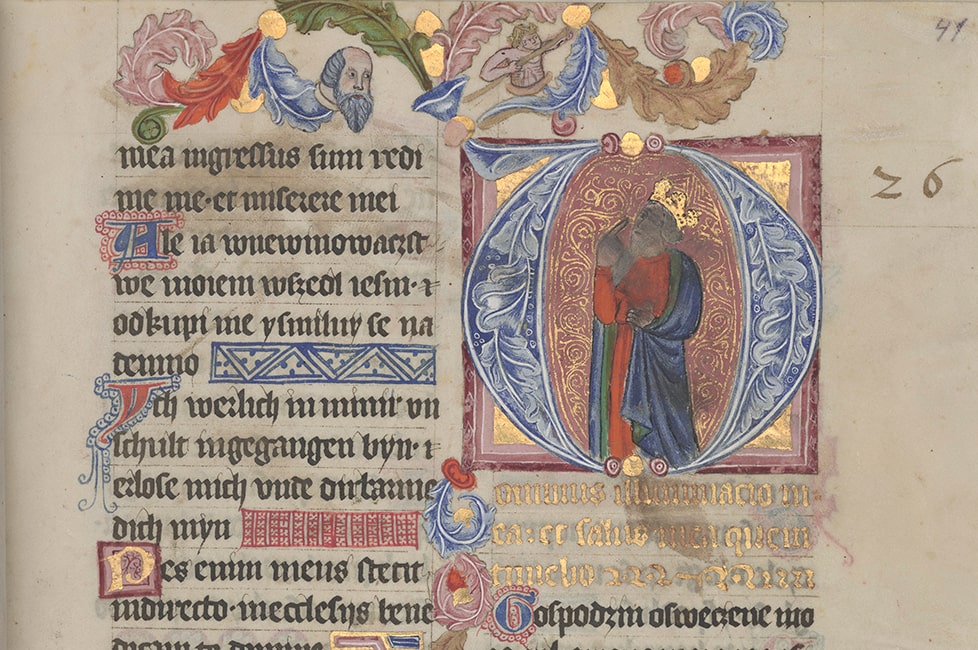 41
26
mea ingressus sum redi
me me·et miserere mei
Ale ia wnewinowaczst
we moiem wszedl iesm·z
odkupi me ysmiluy se na
demno
Ich werlich in minir vn
schult ingegangen byn·i
erlose mich vnde dirbarme
dich myn
Pes enim meus stetit
indirecto·inecclesys bene
dicam te domine
ominus illuminacio m
ea·et salus mea quem
timebo
Gospodzin oswecene mo